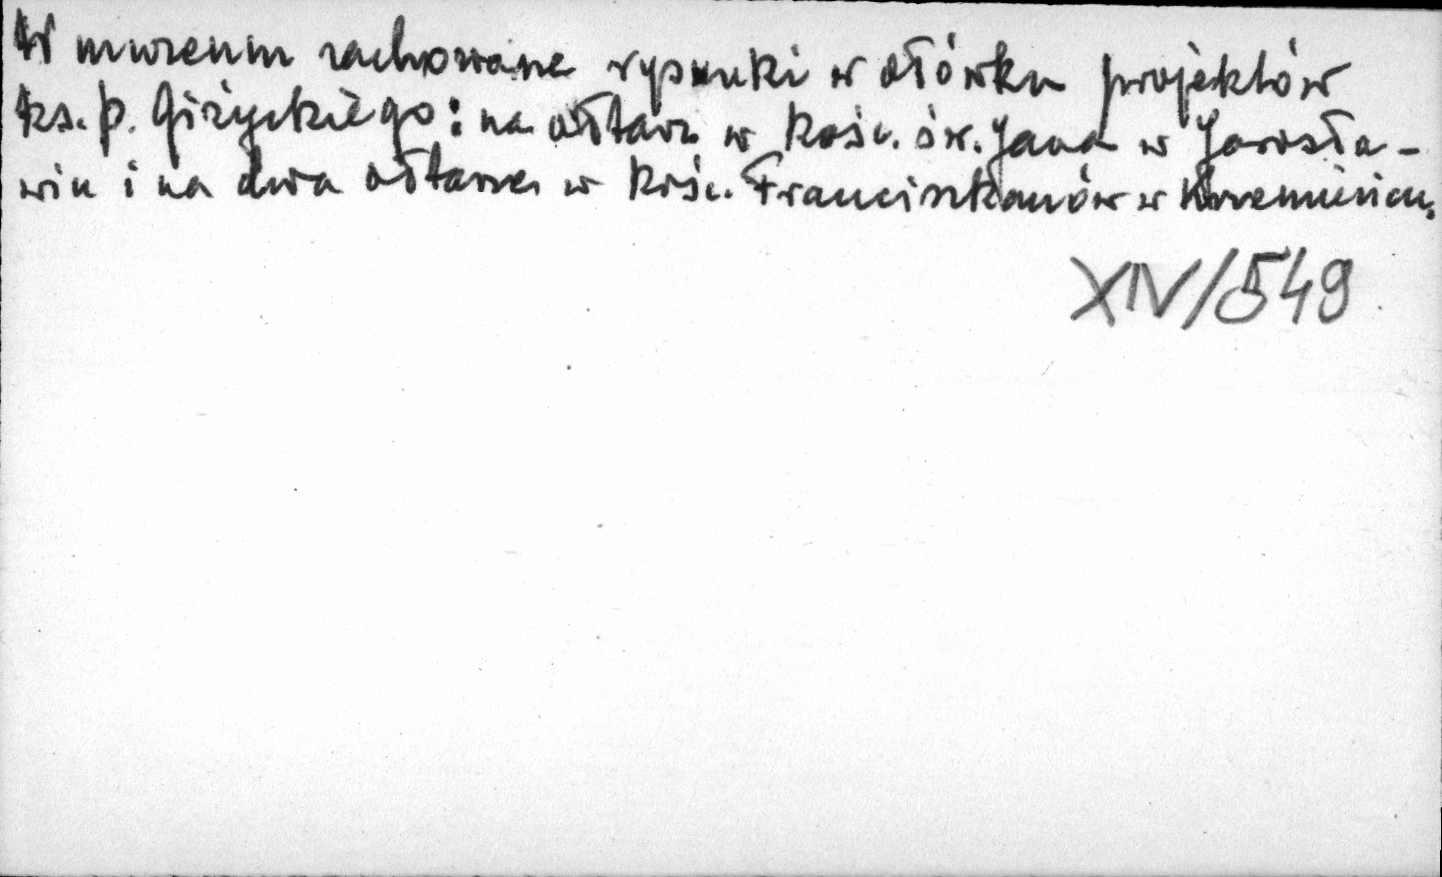 W muzeum zachowane rysunki w ołówku projektów
ks. P. Giżyckiego: na ołtarz w kośc. św. Jana w Jarosła-
wiu i na dwa ołtarze w kośc. Franciszkanów w Krzemieńcu.
XIV/549